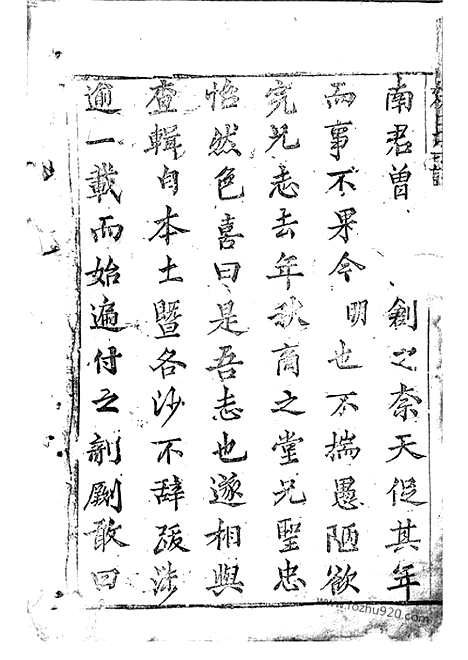 南君曾 創之奈天促其年
而事不果今 明也不揣愚陋欲
完兄志去年秋商之堂兄聖忠
怡然色喜曰是吾志也遂相與
查輯自本土暨各沙不辞跋涉
逾一載而始遍付之剞劂敢曰
www.fozhu920.com